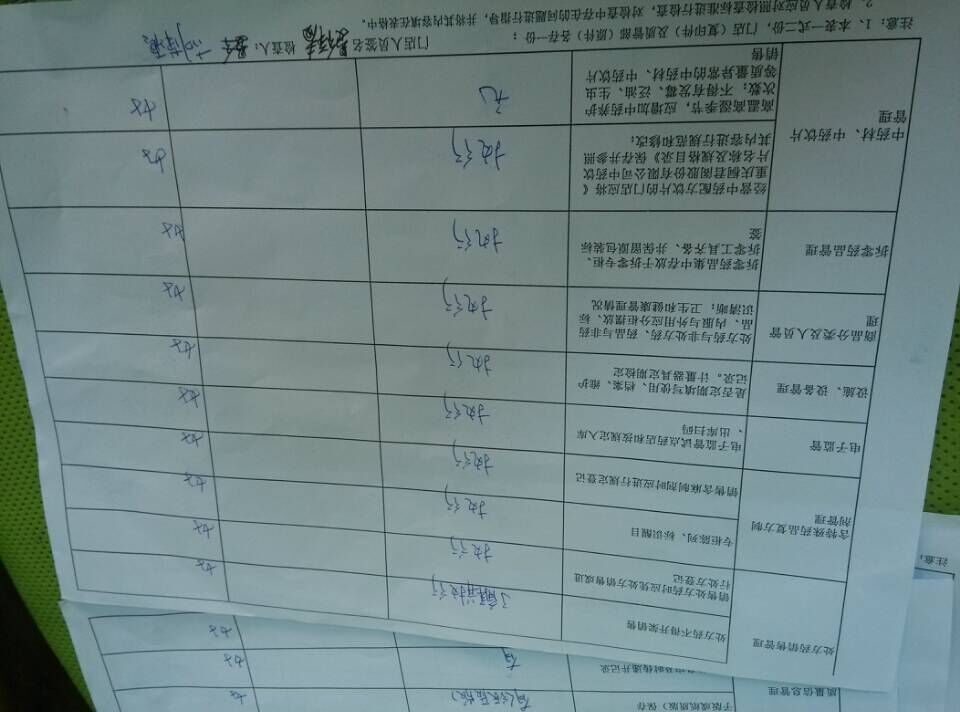 子版或纸质版）保存
质量信息管理
有（纸质版）
有
处方药销售管理
处方药不得开架销售
了解执行
销售处方药时应凭处方销售或进
行处方登记
执行
含特殊药品复方制
剂管理
专柜陈列、标识醒目
执行
销售含麻制剂时应进行规定登记
执行
电子监管
电子监管试点药店和按规定入库
、出库扫码
执行
设施、设备管理
是否定期填写使用、档案、维护
记录。计量器具定期检定
执行
商品分类及人员管
理
处方药与非处方药、药品与非药
品、内服与外用应分柜摆放、标
识清晰；卫生和健康管理情况
执行
拆零药品管理
拆零药品集中存放于拆零专柜、
拆零工具齐备、并保留原包装标
签
执行
中药材、中药饮片
管理
经营中药配方饮片的门店应将《
重庆桐君阁股份有限公司中药饮
片名称及规格目录》保存并参照
其内容进行规范和修改；
执行
高温高湿季节，应增加中药养护
次数；不得有发霉、泛油、生虫
等质量异常的中药材、中药饮片
销售
无
注意：1、本表一式二份，门店（复印件）及质管部（原件）各存一份；
2、检查人员应对照检查标准进行检查，对检查中存在的问题进行指导，并将其内容填在表格中。
门店人员签名
检查人：
注意：